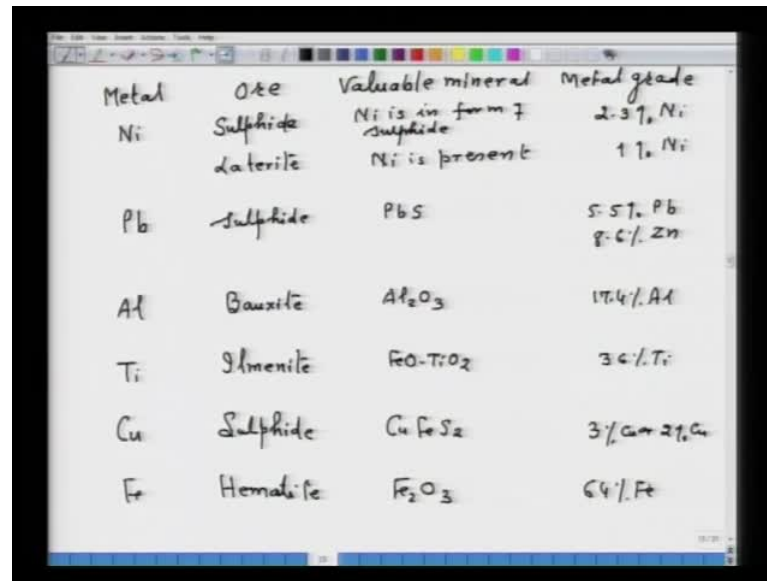 Metal Ore Valuable mineral Metal grade
Ni Sulphide Ni is in form of sulphide 2.3% Ni
Laterite Ni is present 1% Ni
Pb Sulphide PbS 5.5% Pb
8.6% Zn
Al Bauxite Al2O3 17.4% Al
Ti Ilmenite FeO-TiO2 36% Ti
Cu Sulphide CuFeS2 3% Cu or 2% Cu
Fe Hematite Fe2O3 64% Fe